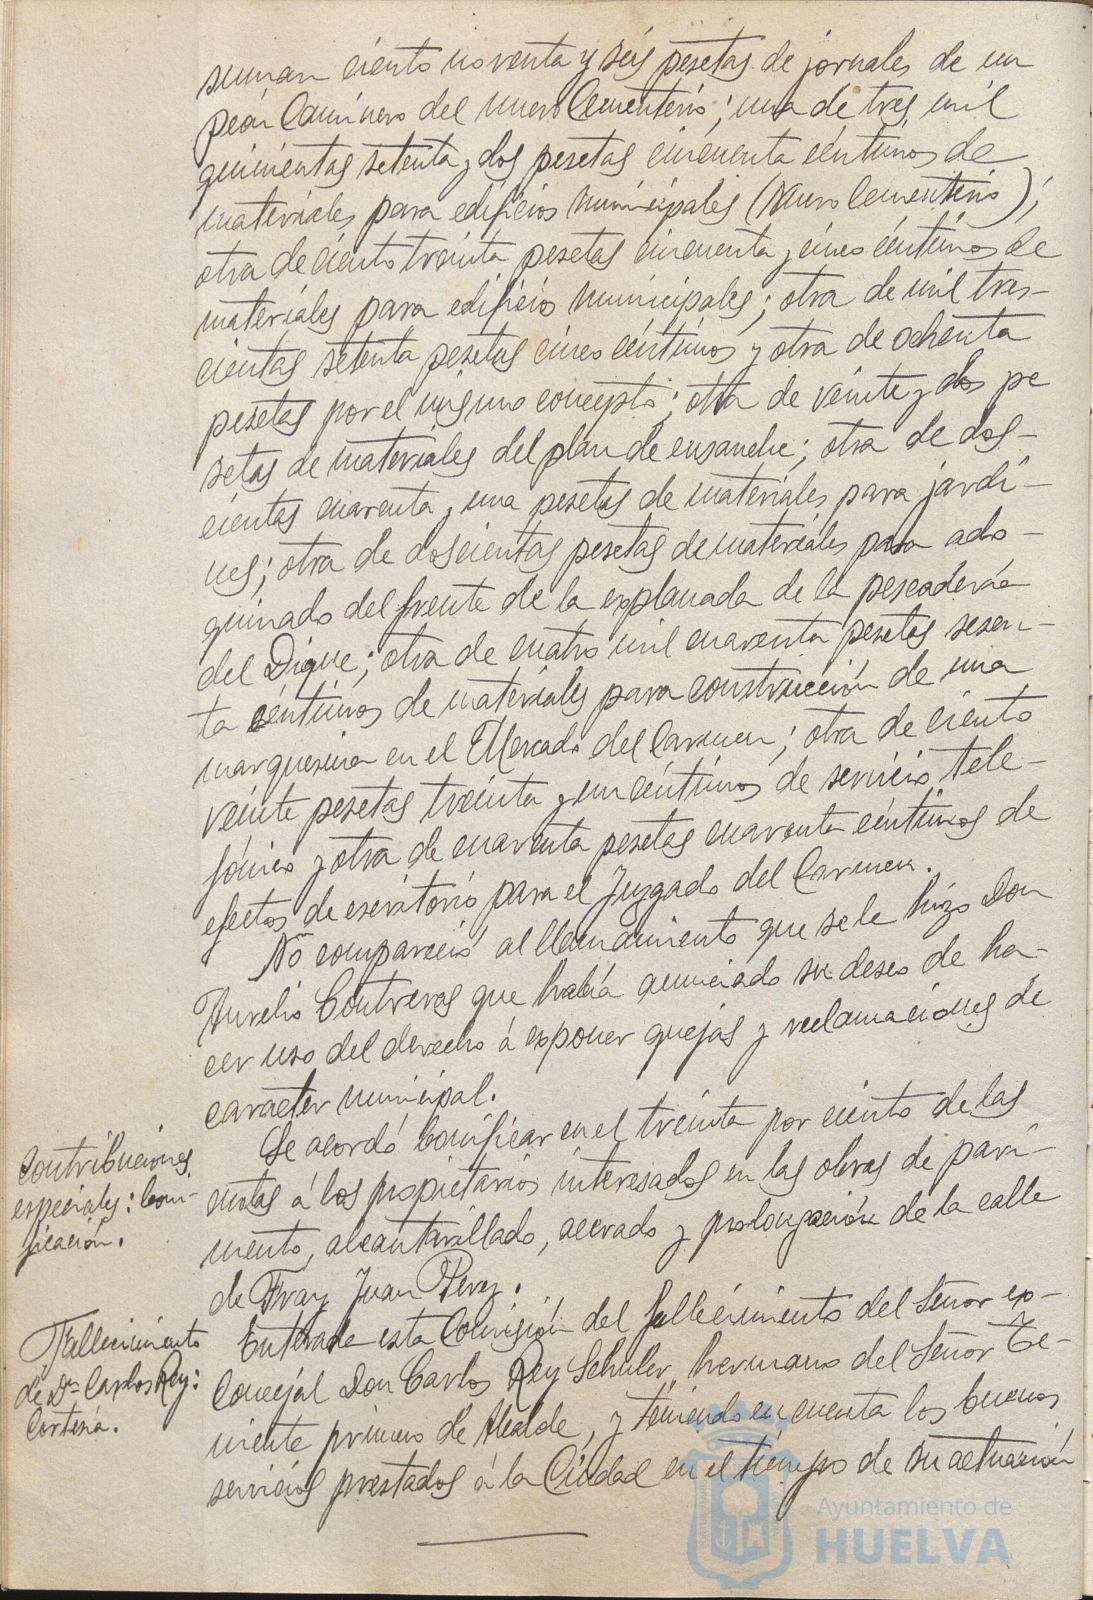 suman ciento noventa y séis pesetas de jornales de un
peón Caminero del nuevo Cementerio; una de tres mil
quinientas setenta y dos pesetas cincuenta céntimos de
materiales para edificios municipales (Nuevo Cementerio);
otra de ciento treinta pesetas cincuenta y cinco céntimos de
materiales para edificios municipales; otra de mil tras-
cientas setenta pesetas cinco céntimos y otra de ochenta
pesetas por el mismo concepto; otra de veinte y dos pe
setas de materiales del plan de ensanche; otra de dos-
cientas cuarenta y una pesetas de materiales para jardi-
nes; otra de doscientas pesetas de materiales para ado-
quinado del frente de la explanada de la pescadería
del Dique; otra de cuatro mil cuarenta pesetas sesen-
ta céntimos de materiales para construcción de una
marquesina en el Mercado del Carmen; otra de ciento
veinte pesetas treinta y un céntimos de servicio tele-
fónico y otra de cuarenta pesetas cuarenta céntimos de
efectos de escritorio para el Juzgado del Carmen.
No compareció al llamamiento que se le hizo Don
Aurelio Contreras que había anunciado su deseo de ha-
cer uso del derecho á exponer quejas y reclamaciones de
caracter municipal.
Contribuciones
especiales: boni-
ficación.
Se acordó bonificar en el treinta por ciento de las
cuotas á los propietarios interesados en las obras de pavi-
mento, alcantarillado, acerado y prolongación de la calle
de Fray Juan Pérez.
Fallecimiento
de Dn Carlos Rey:
Cortesía.
Enterada esta Comisión del fallecimiento del Señor ex-
Concejal Don Carlos Rey Schuler, hermano del Señor Te-
niente primero de Alcalde, y teniendo en cuenta los buenos
servicios prestados á la Ciudad en el tiempo de su actuación
Ayuntamiento de
HUELVA